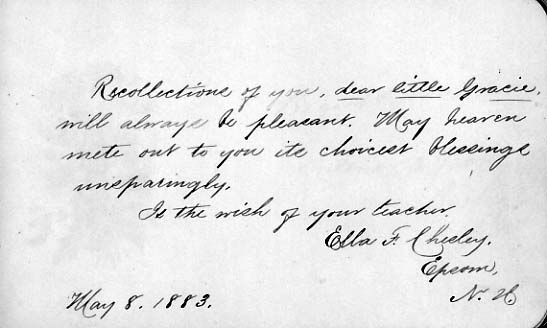 Recollections of you, dear little Gracie,
will always be pleasant. May heaven
mete out to you its choicest blessings
unsparingly.
Is the wish of your teacher.
Ella F.
Epsom,
N. H.
May 8. 1883.